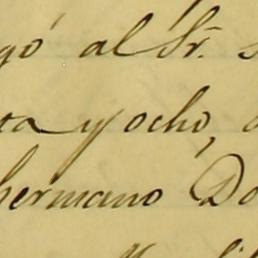 gó al Sr.
ta y ocho,
hermano Do